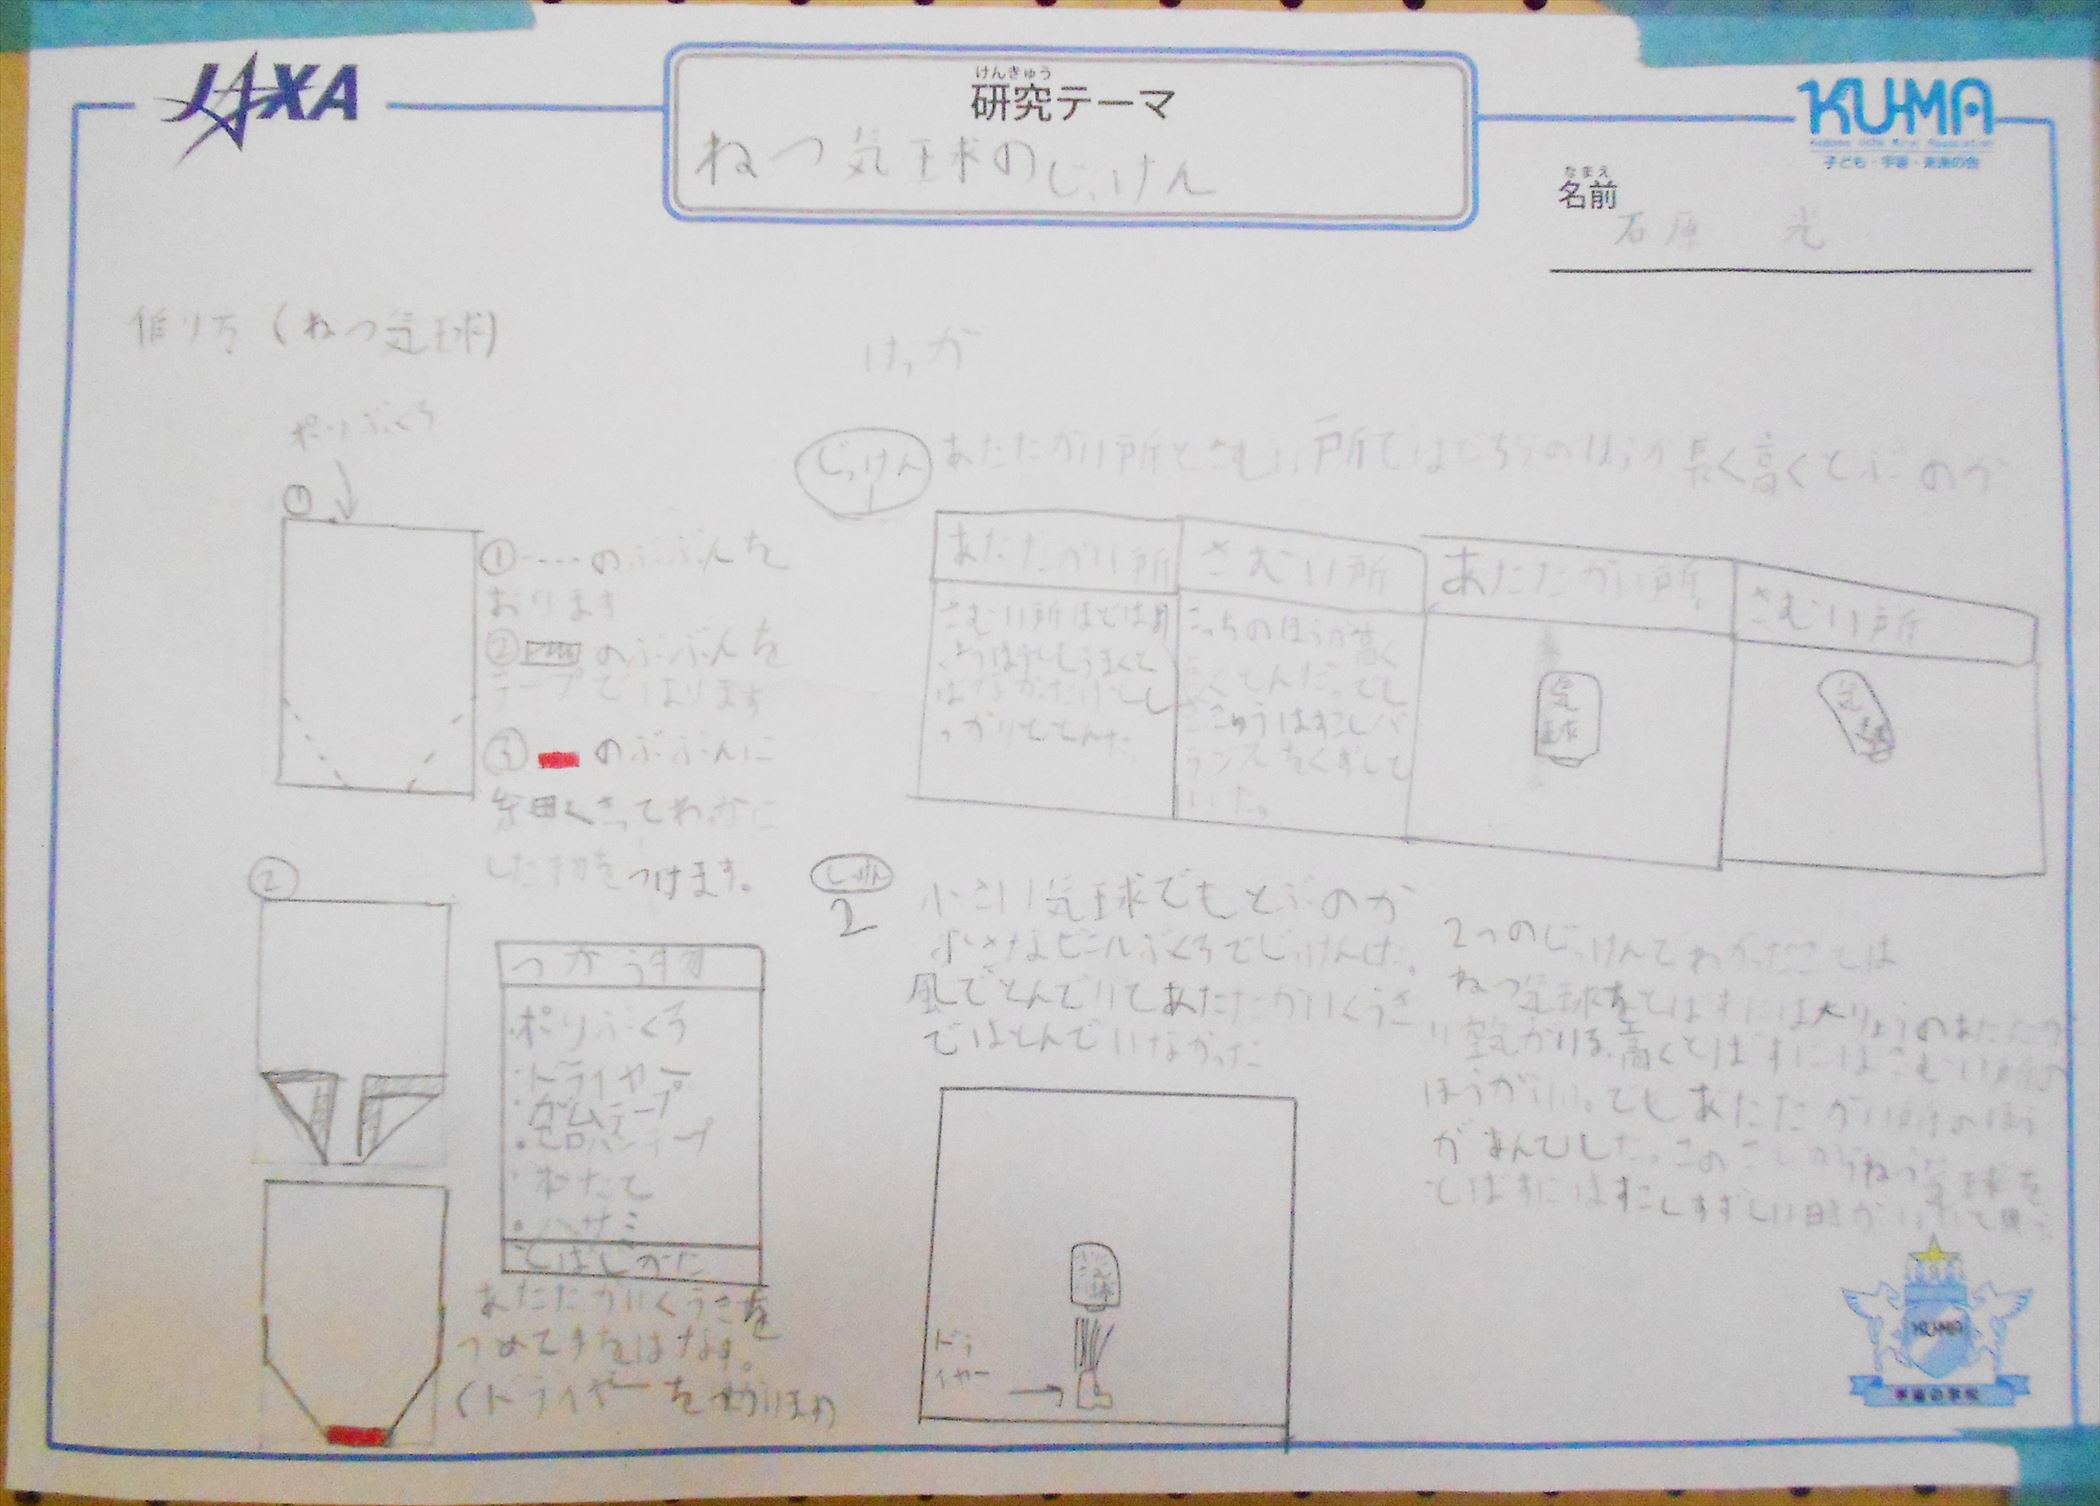 JAXA
けんきゅう
研究テーマ
ねつ気球のじっけん
KU-MA
子ども・宇宙・未来の会
なまえ
名前
石原 光
作り方(ねつ気球)
ポリぶくろ
①
①‥‥のぶぶんを
おります
②のぶぶんを
テープではります
③のぶぶんに
細くきってわなに
した物をつけます。
②
つかう物
・ポリぶくろ
・ドライヤー
・ガムテープ
・セロハンテープ
・ハサミ
とばしかた
あたたかいくうきを
つめて手をはなす。
(ドライヤーを
けっか
じっけん
1
あたたかい所とさむい所ではどちらのほうが長く高くとぶのか
あたたかい所
さむい所
あたたかい所
さむい所
さむい所
こっちのほうが高く
とんだ。でも
すこしバ
ランスをくずして
いた。
気球
気球
2
小さい気球でもとぶのか
小さなビニルぶくろでじっけんした。
風でとんでいてあたたかいくうき
ではとんでいなかった
ドラ
イヤー
2つのじっけんでわかったことは
ねつ気球をとばすには大りょうのあたたか
い空気がいる。高くとばすにはさむい所の
ほうがいい。でもあたたかい所のほう
があんていした。このことからねつ気球を
とばすにはすこしすずしい日がいいと思う
KU-MA
宇宙の学校